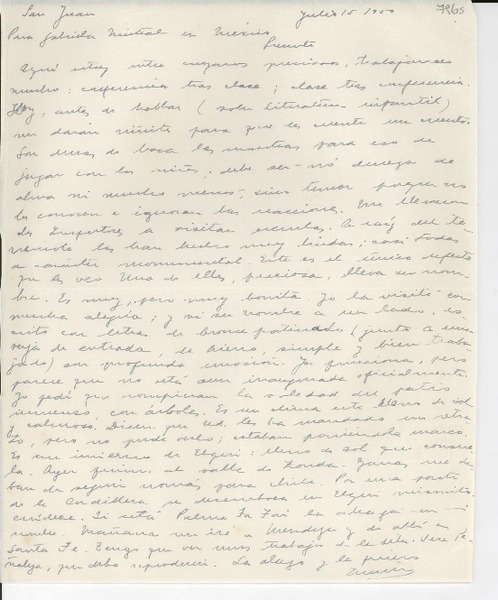 San Juan Julio 15 - 1950 796s
Para Gabriela Mistral en México
Presente
Aquí estoy entre cuyanos preciosos, trabajando
mucho: conferencia tras clase; clase tras conferencia.
Hoy, antes de hablar (sobre Literatura infantil)
me darán niñitos para que les cuente un cuento.
Son duras de boca las maestras para eso de
jugar con los niños; debe ser - nó dureza de
alma ni mucho menos -, sino temor porque no
los conocen e ignoran las reacciones. Me llevaron
de Empertres a visitar escuelas. A raíz del te-
rremoto las han hecho muy lindas; casi todas
de carácter monumental. Este es el único defecto
que les veo. Una de ellas, preciosa, lleva su nom-
bre. Es muy, pero muy bonita. Yo la visité con
mucha alegría; y vi su nombre a un lado, es-
crito con letras de bronce patinado (junto a una
reja de entrada, de hierro, simple y bien traba-
jada) con profunda emoción. Ya funciona, pero
parece que no está aun inaugurada oficialmente.
Yo pedí que rompieran la soledad del patio
inmenso, con árboles. Es un clima este lleno de sol
y caluroso. Dicen que Ud. les ha mandado un retra-
to, pero no pude verlo; estaban poniéndole marco.
Es un invierno de Elqui: lleno de sol que consue-
la. Ayer fuimos al valle de Zonda. Ganas me da-
ban de seguir nomás para Chile. Por una parte
de la Cordillera, se desemboca en Elqui mismito.
Si está Palma
nombre. Mañana me iré a Mendoza y de allí a
Santa Fe. Tengo que ver unos trabajos de la Srta. Vera Pe-
ñaloza, que debo reproducir. La abrazo y la quiero